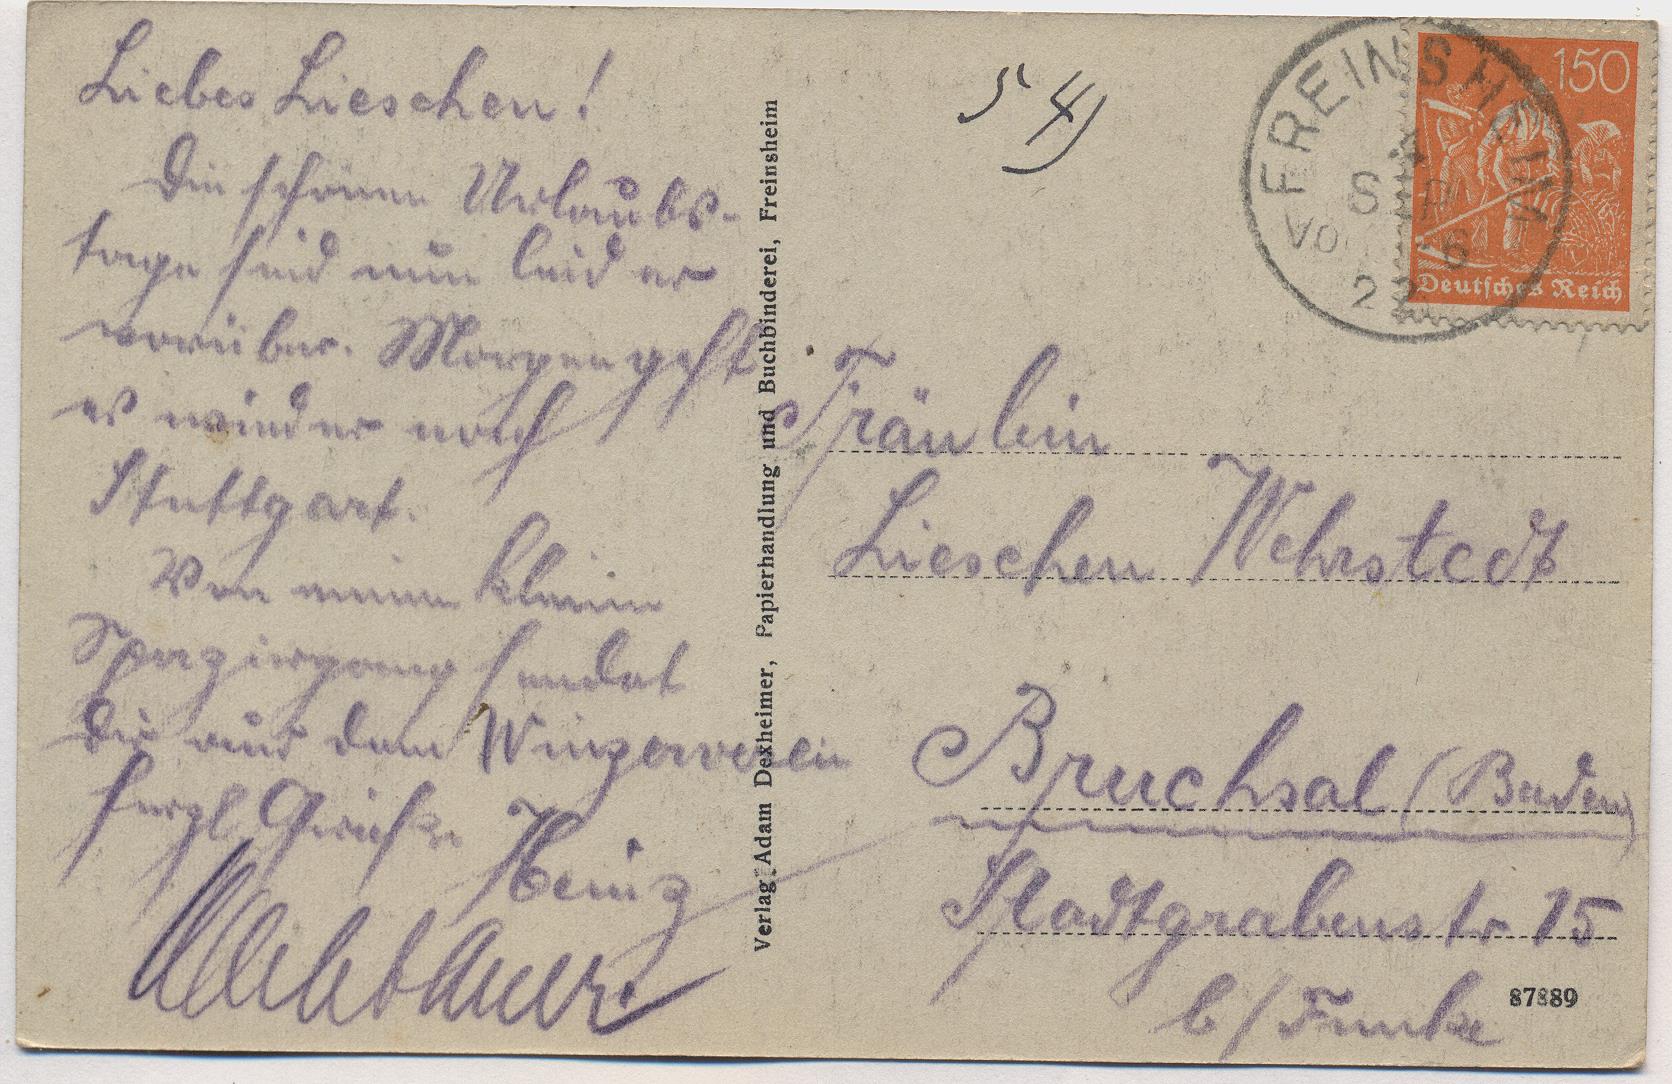 Liebes Lieschen!
Die schönen Urlaubs-
tage sind nun leider
vorüber. Morgen geht
es wieder nach
Stuttgart.
Von meinem kleinen
Spaziergang sendet
Dir aus dem Winzerverein
herzl Grüße Heinz
Verlag Adam Dexheimer, Papierhandlung und Buchbinderei, Freinsheim
FREINSHEIM
SEP
22
150
Deutsches Reich
Fräulein
Lieschen Wehrstedt
Bruchsal (Baden)
Stadtgrabenstr 15
b/Funke
87889